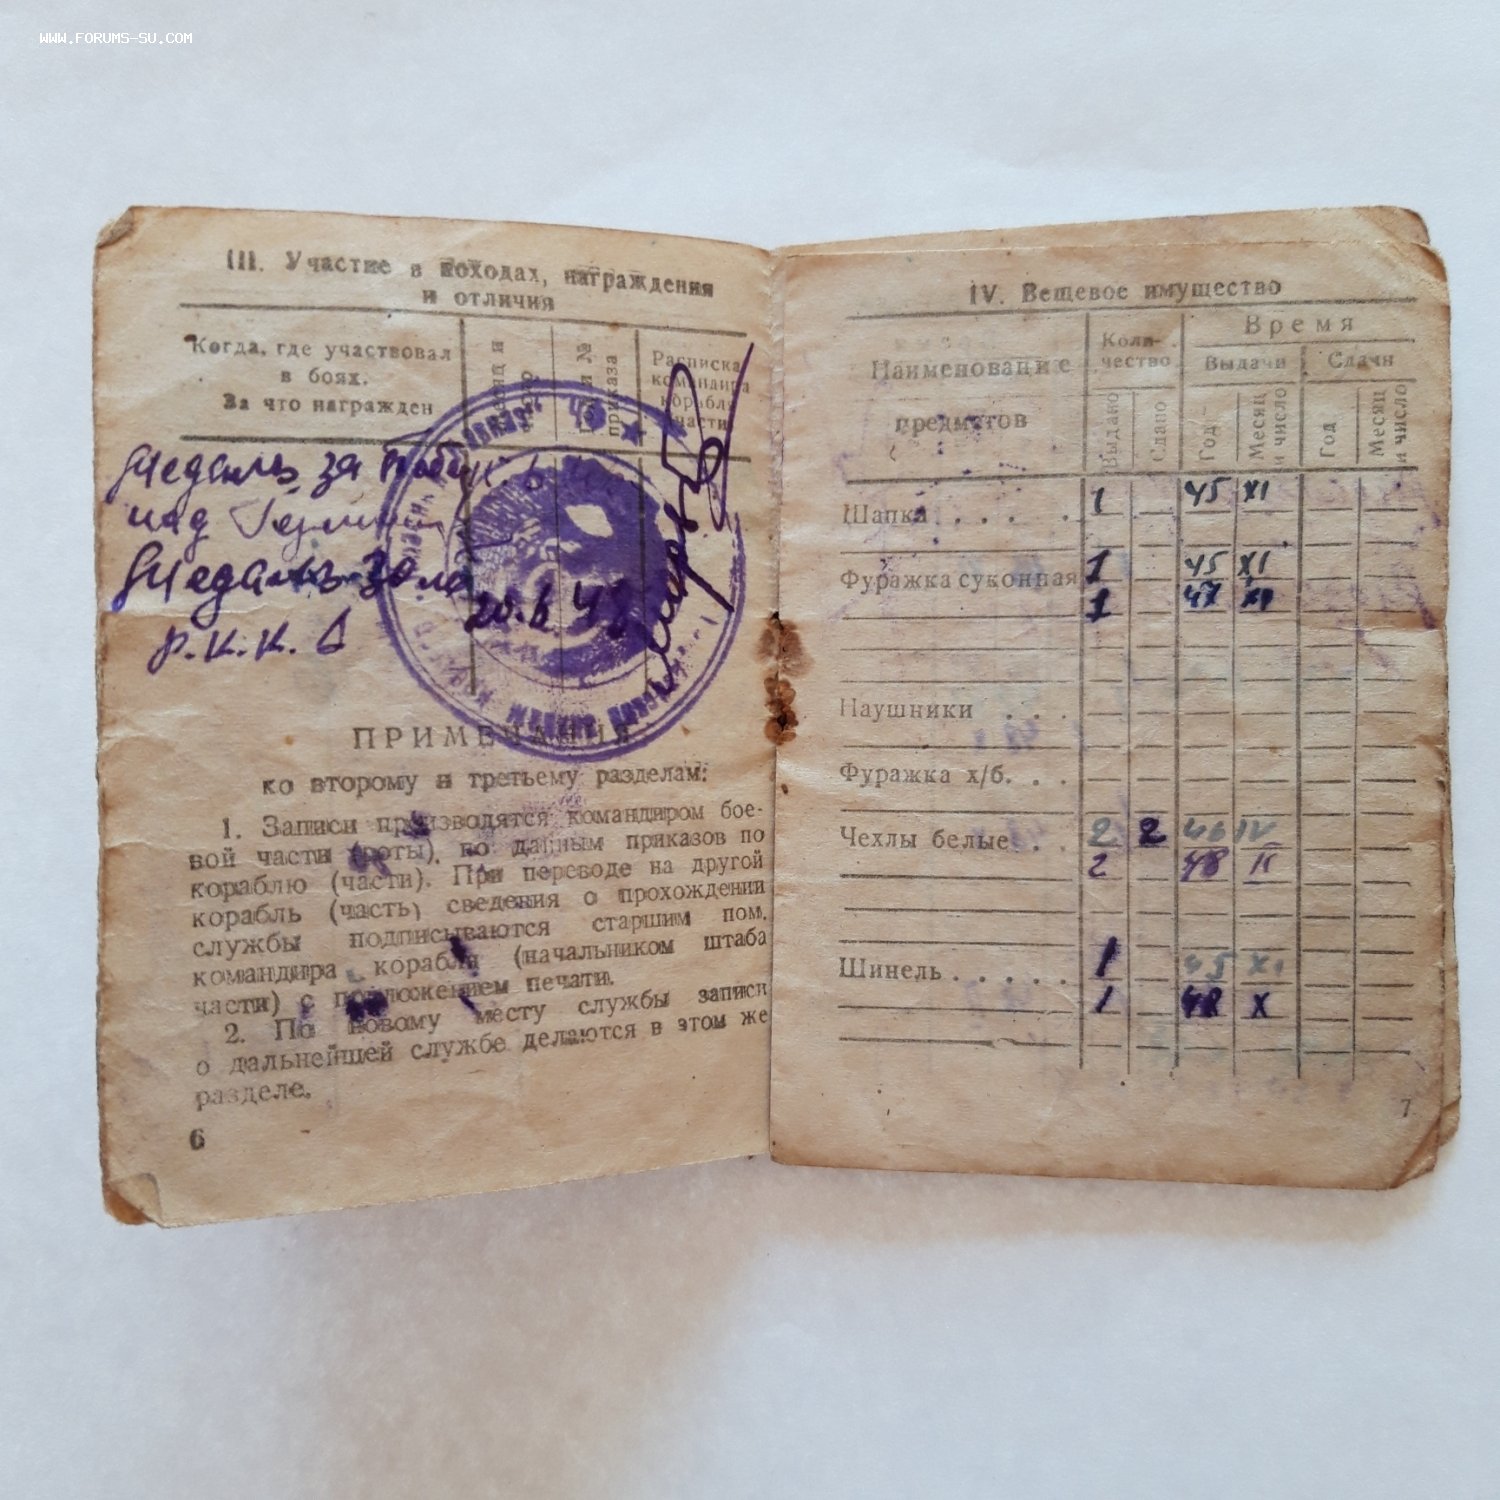 WWW.FORUMS-SU.COM
III. Участие в походах, награждения
и отличия
Когда, где участвовал
в боях.
За что награжден
приказа
Расписка
командира
корабля
Медаль за
над
Медаль
20.
Р.К.К.
ПРИМЕЧАНИЯ
ко второму и третьему разделам:
1. Записи производятся командиром бое-
вой части (роты), по данным приказов по
кораблю (части). При переводе на другой
корабль (часть) сведения о прохождении
службы подписываются старшим пом.
командира корабля (начальником штаба
части) с приложением печати.
2. По новому месту службы записи
о дальнейшей службе делаются в этом же
разделе.
6
IV. Вещевое имущество
Наименование
предметов
Коли-
чество
Время
Выдачи Сдачи
Выдано Сдано Год Месяц и число Год Месяц и число
Шапка . . . . 1 45 XI
Фуражка суконная 1 45 XI
1 47 XI
Наушники . . .
Фуражка х/б. . .
Чехлы белые . . 2 2 46 IV
2 48
Шинель . . . . . 1 45 XI
1 48 X
7